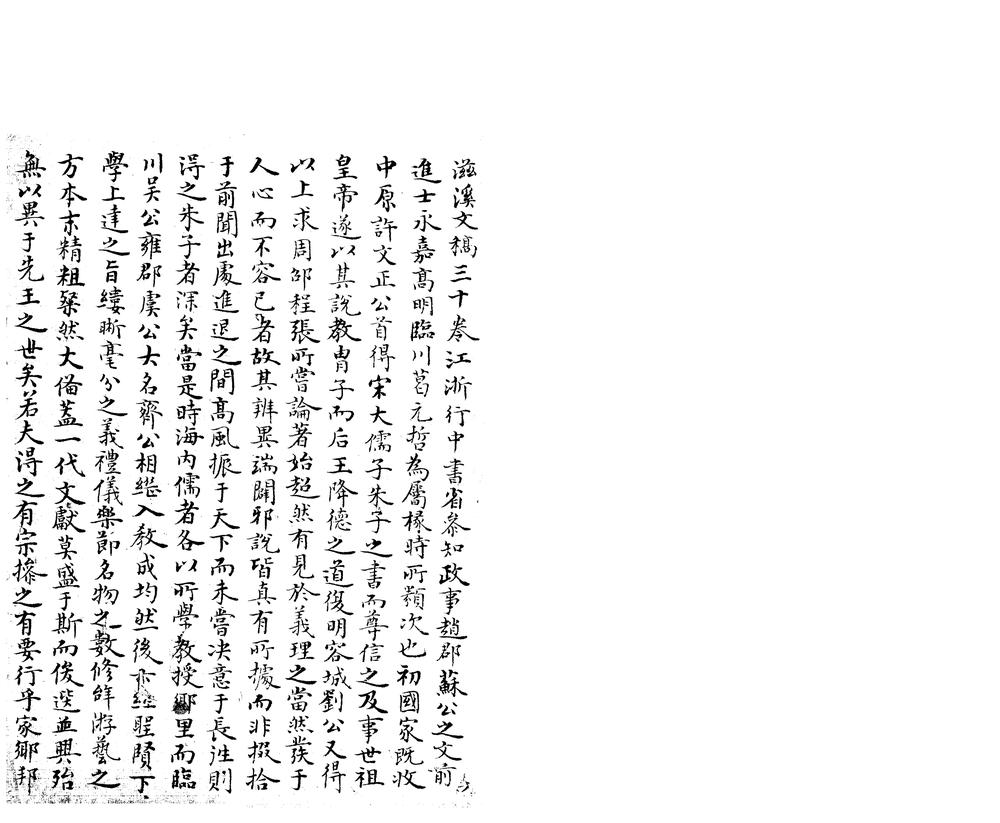 滋溪文稿三十卷江浙行中書省叅知政事趙郡蘇公之文前
進士永嘉髙明臨川葛元哲為屬掾時所類次也初國家既收
中原許文正公首得宋大儒子朱子之書而尊信之及事世祖
皇帝遂以其說教胄子而后王降德之道復明容城劉公又得
以上求周邵程張所嘗論著始超然有見於義理之當然發于
人心而不容已者故其辨異端闢邪說皆真有所據而非掇拾
于前聞出處進退之間髙風振于天下而未嘗决意于長徃則
得之朱子者深矣當是時海内儒者各以所學教授鄉里而臨
川吴公雍郡虞公大名齊公相繼入教成均然後
聖賢下
學上達之旨縷晰毫分之義禮儀樂節名物之數修辭游藝之
方本末精粗粲然大備蓋一代文獻莫盛于斯而俊選並興殆
無以異于先王之世矣若夫得之有宗操之有要行乎家鄉邦